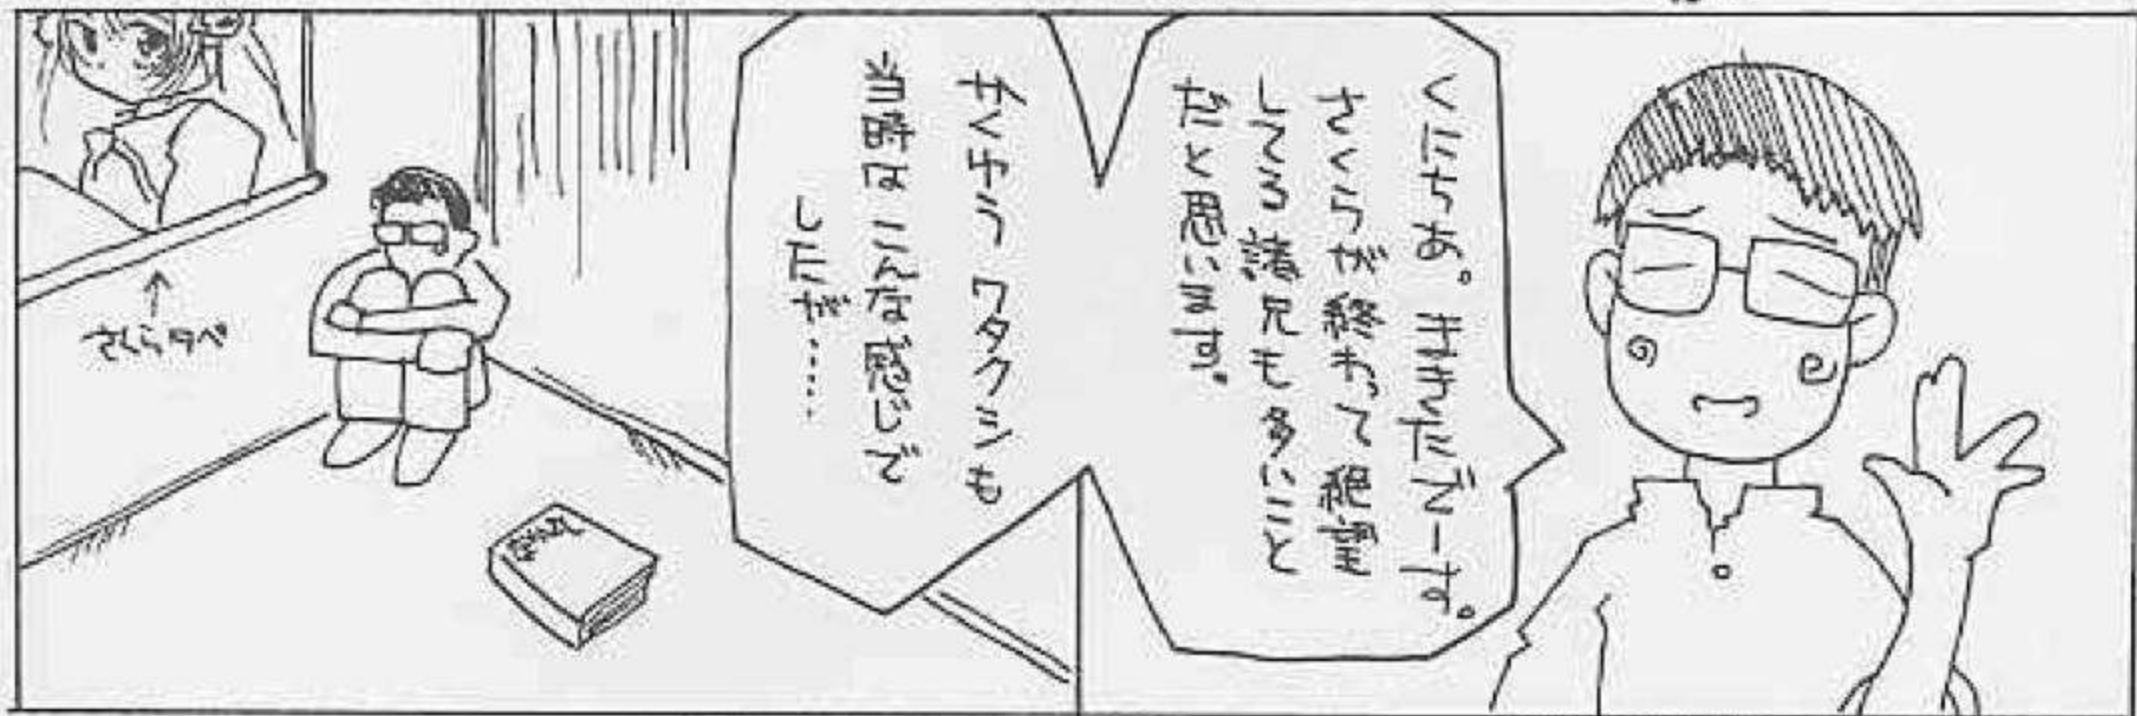 くにちわ。ききただでーす。
さくらが終わって絶望
してる諸兄も多いこと
だと思います。
かくゆうワタクシも
当時はこんな感じで
したが……
↑
さくらタペ